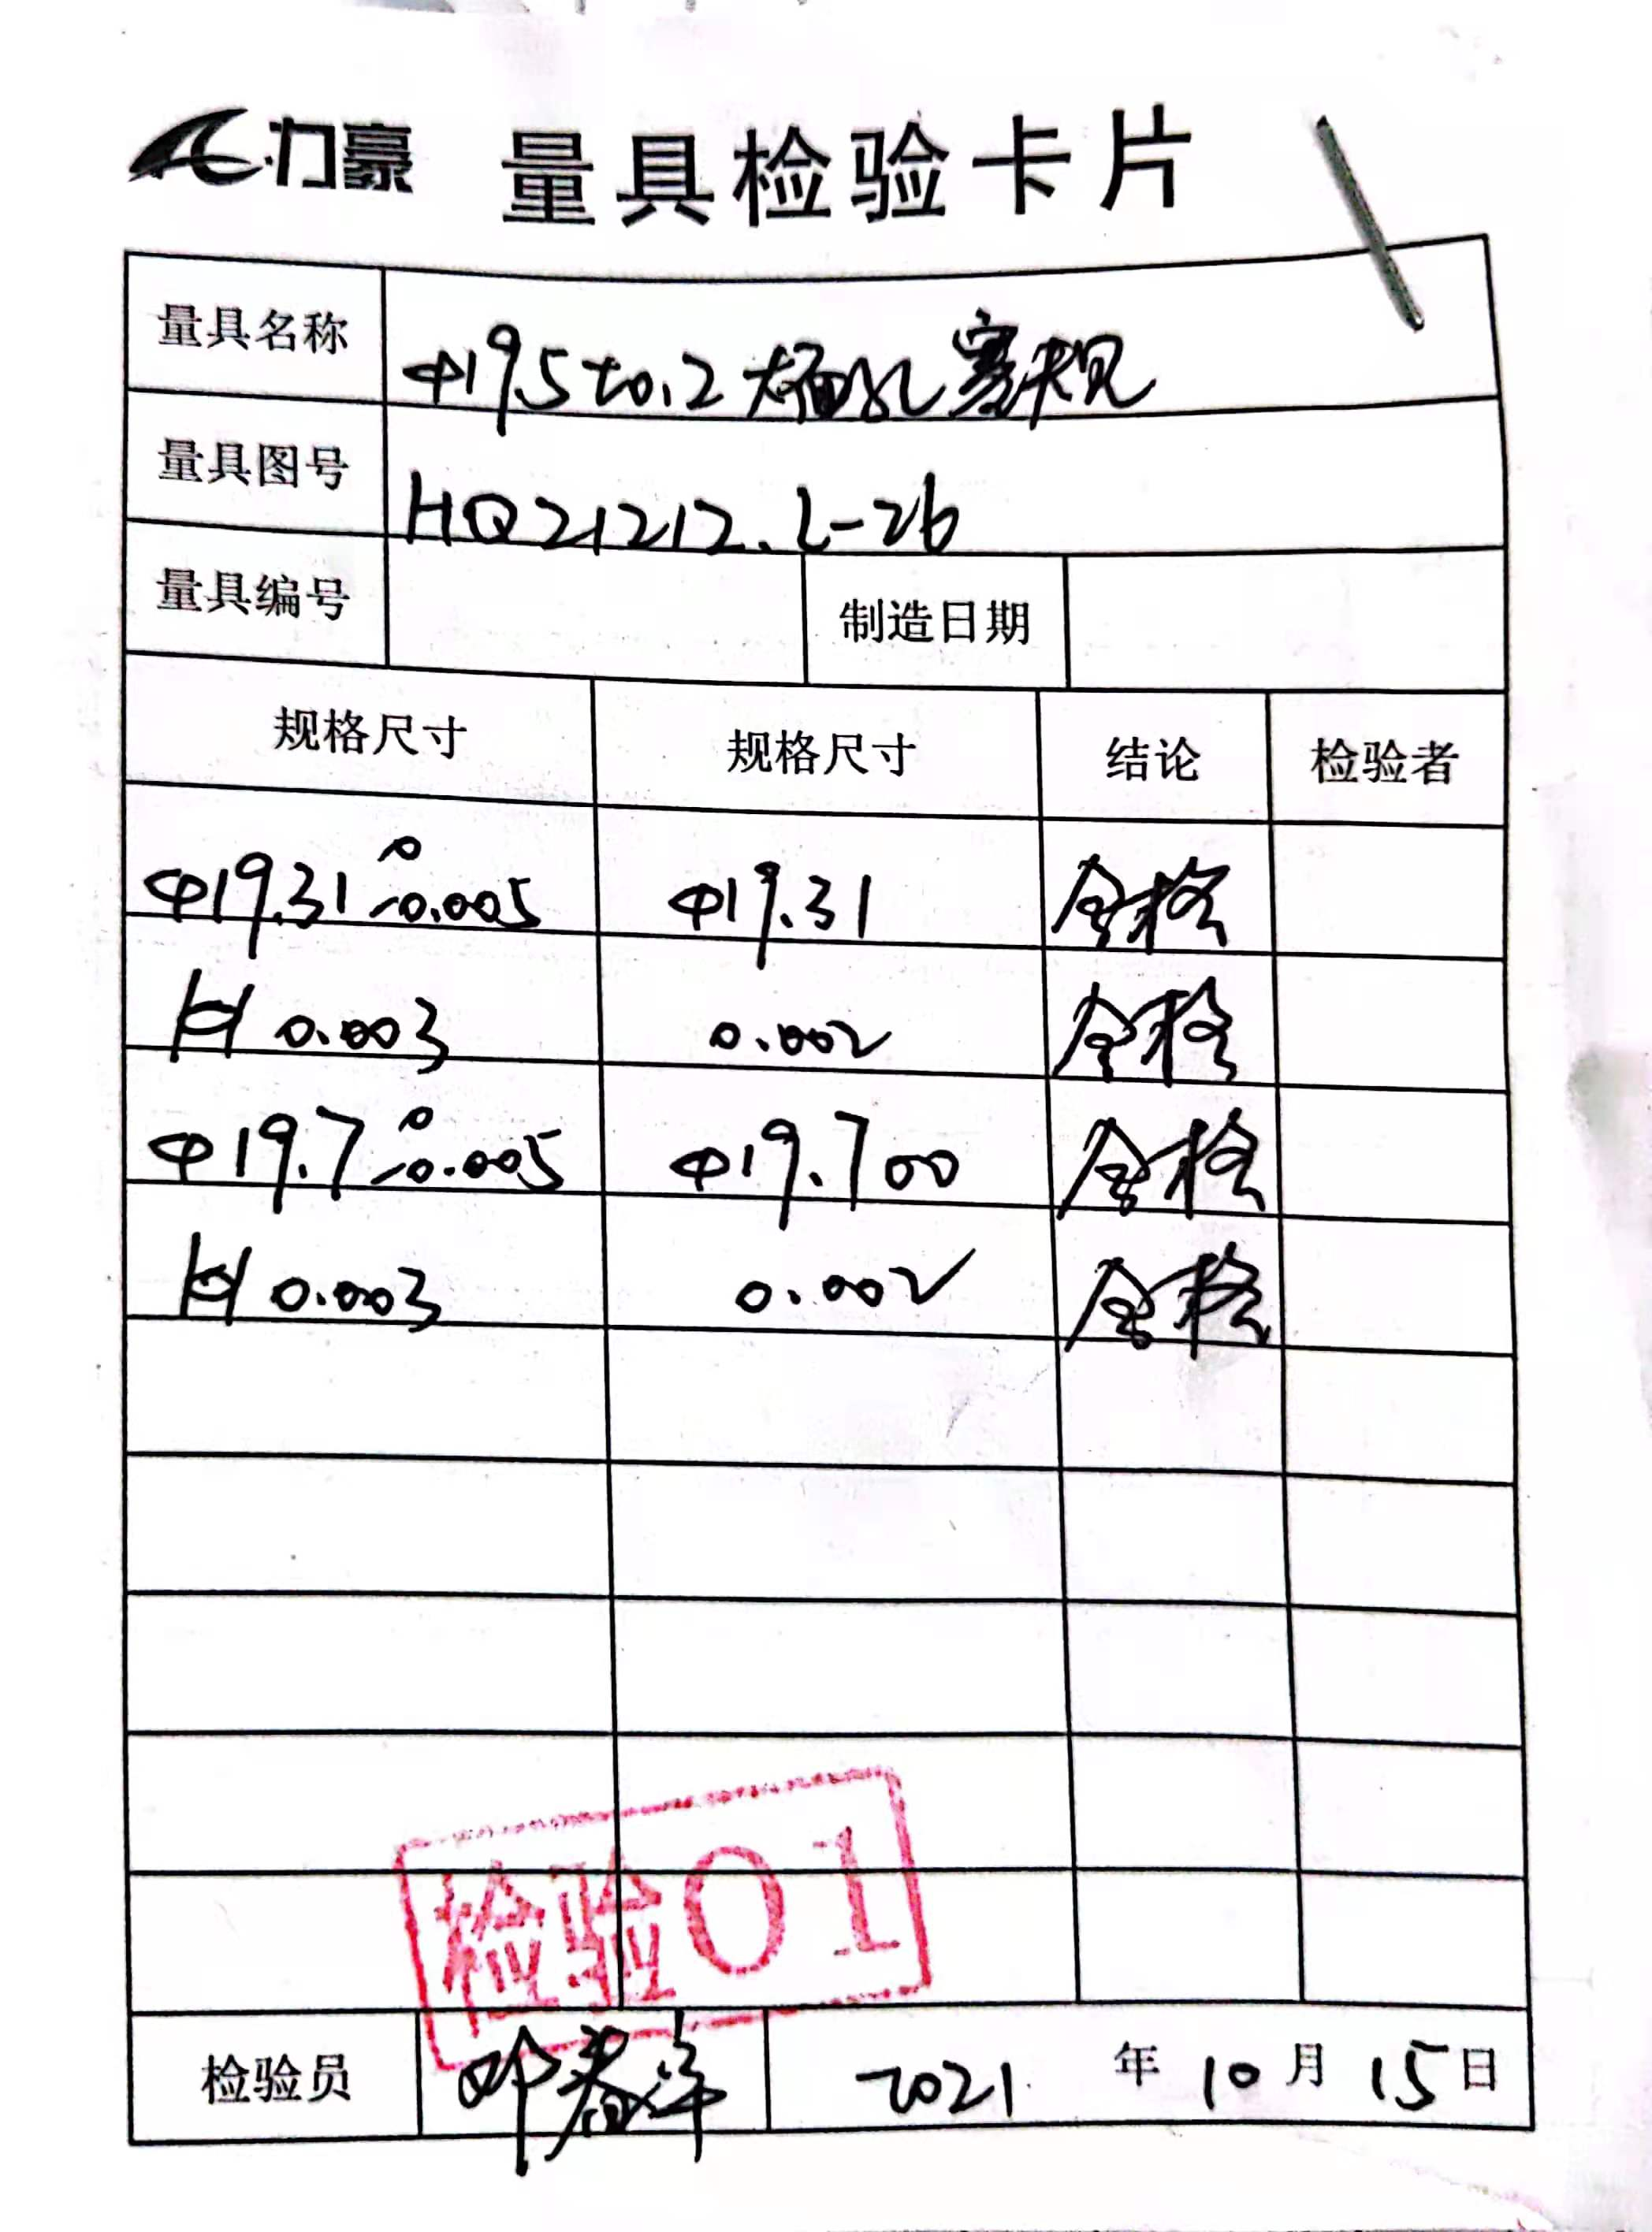 力豪 量具检验卡片
量具名称 Φ19.5±0.2 椭圆孔塞规
量具图号 HQ21212.L-26
量具编号 制造日期
规格尺寸 规格尺寸 结论 检验者
Φ19.31 0/-0.005 Φ19.31 合格
0.003 0.002 合格
Φ19.7 0/-0.005 Φ19.700 合格
0.003 0.002 合格
检验01
检验员 2021 年 10 月 15 日